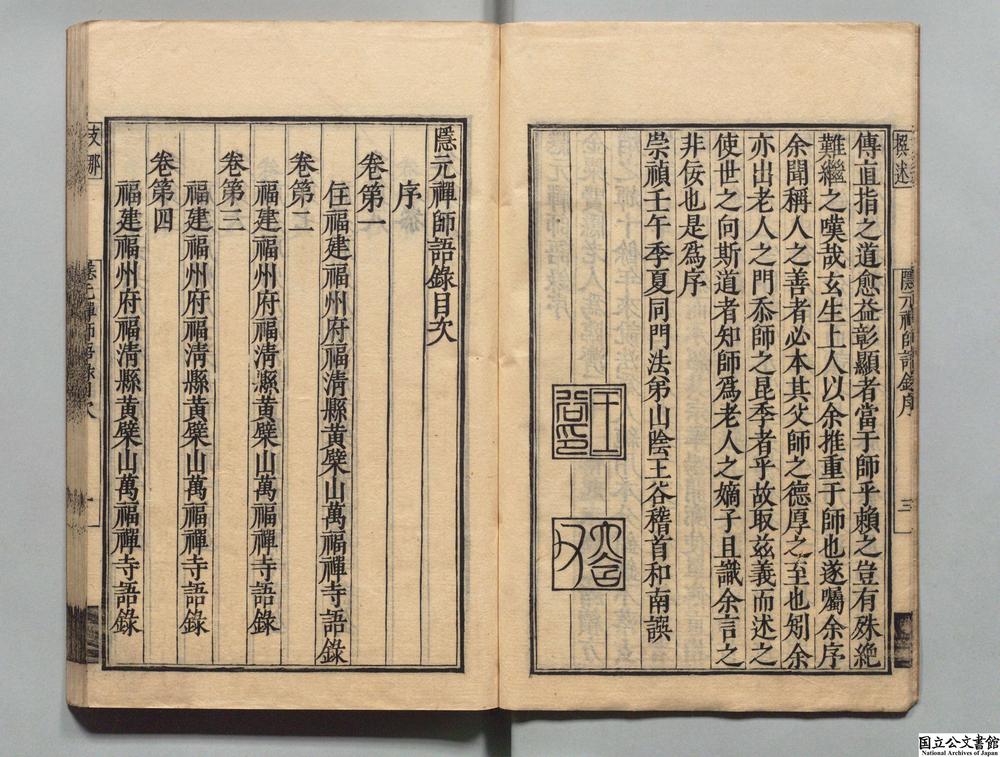 撰述
隱元禪師語錄序
三
傳直指之道愈益彰顯者當于師乎賴之豈有殊絶
難繼之嘆哉玄生上人以余推重于師也遂囑余序
余聞稱人之善者必本其父師之德厚之至也矧余
亦出老人之門忝師之昆季者乎故取茲義而述之
使世之向斯道者知師爲老人之嫡子且識余言之
非佞也是爲序
崇禎壬午季夏同門法弟山陰王谷稽首和南譔
王谷印
隱元禪師語錄目次
序
卷第一
住福建福州府福清縣黃檗山萬福禪寺語錄
卷第二
福建福州府福清縣黃檗山萬福禪寺語錄
卷第三
福建福州府福清縣黃檗山萬福禪寺語錄
卷第四
福建福州府福清縣黃檗山萬福禪寺語錄
支那
隱元禪師語錄目次
一
国立公文書館
National Archives of Japan